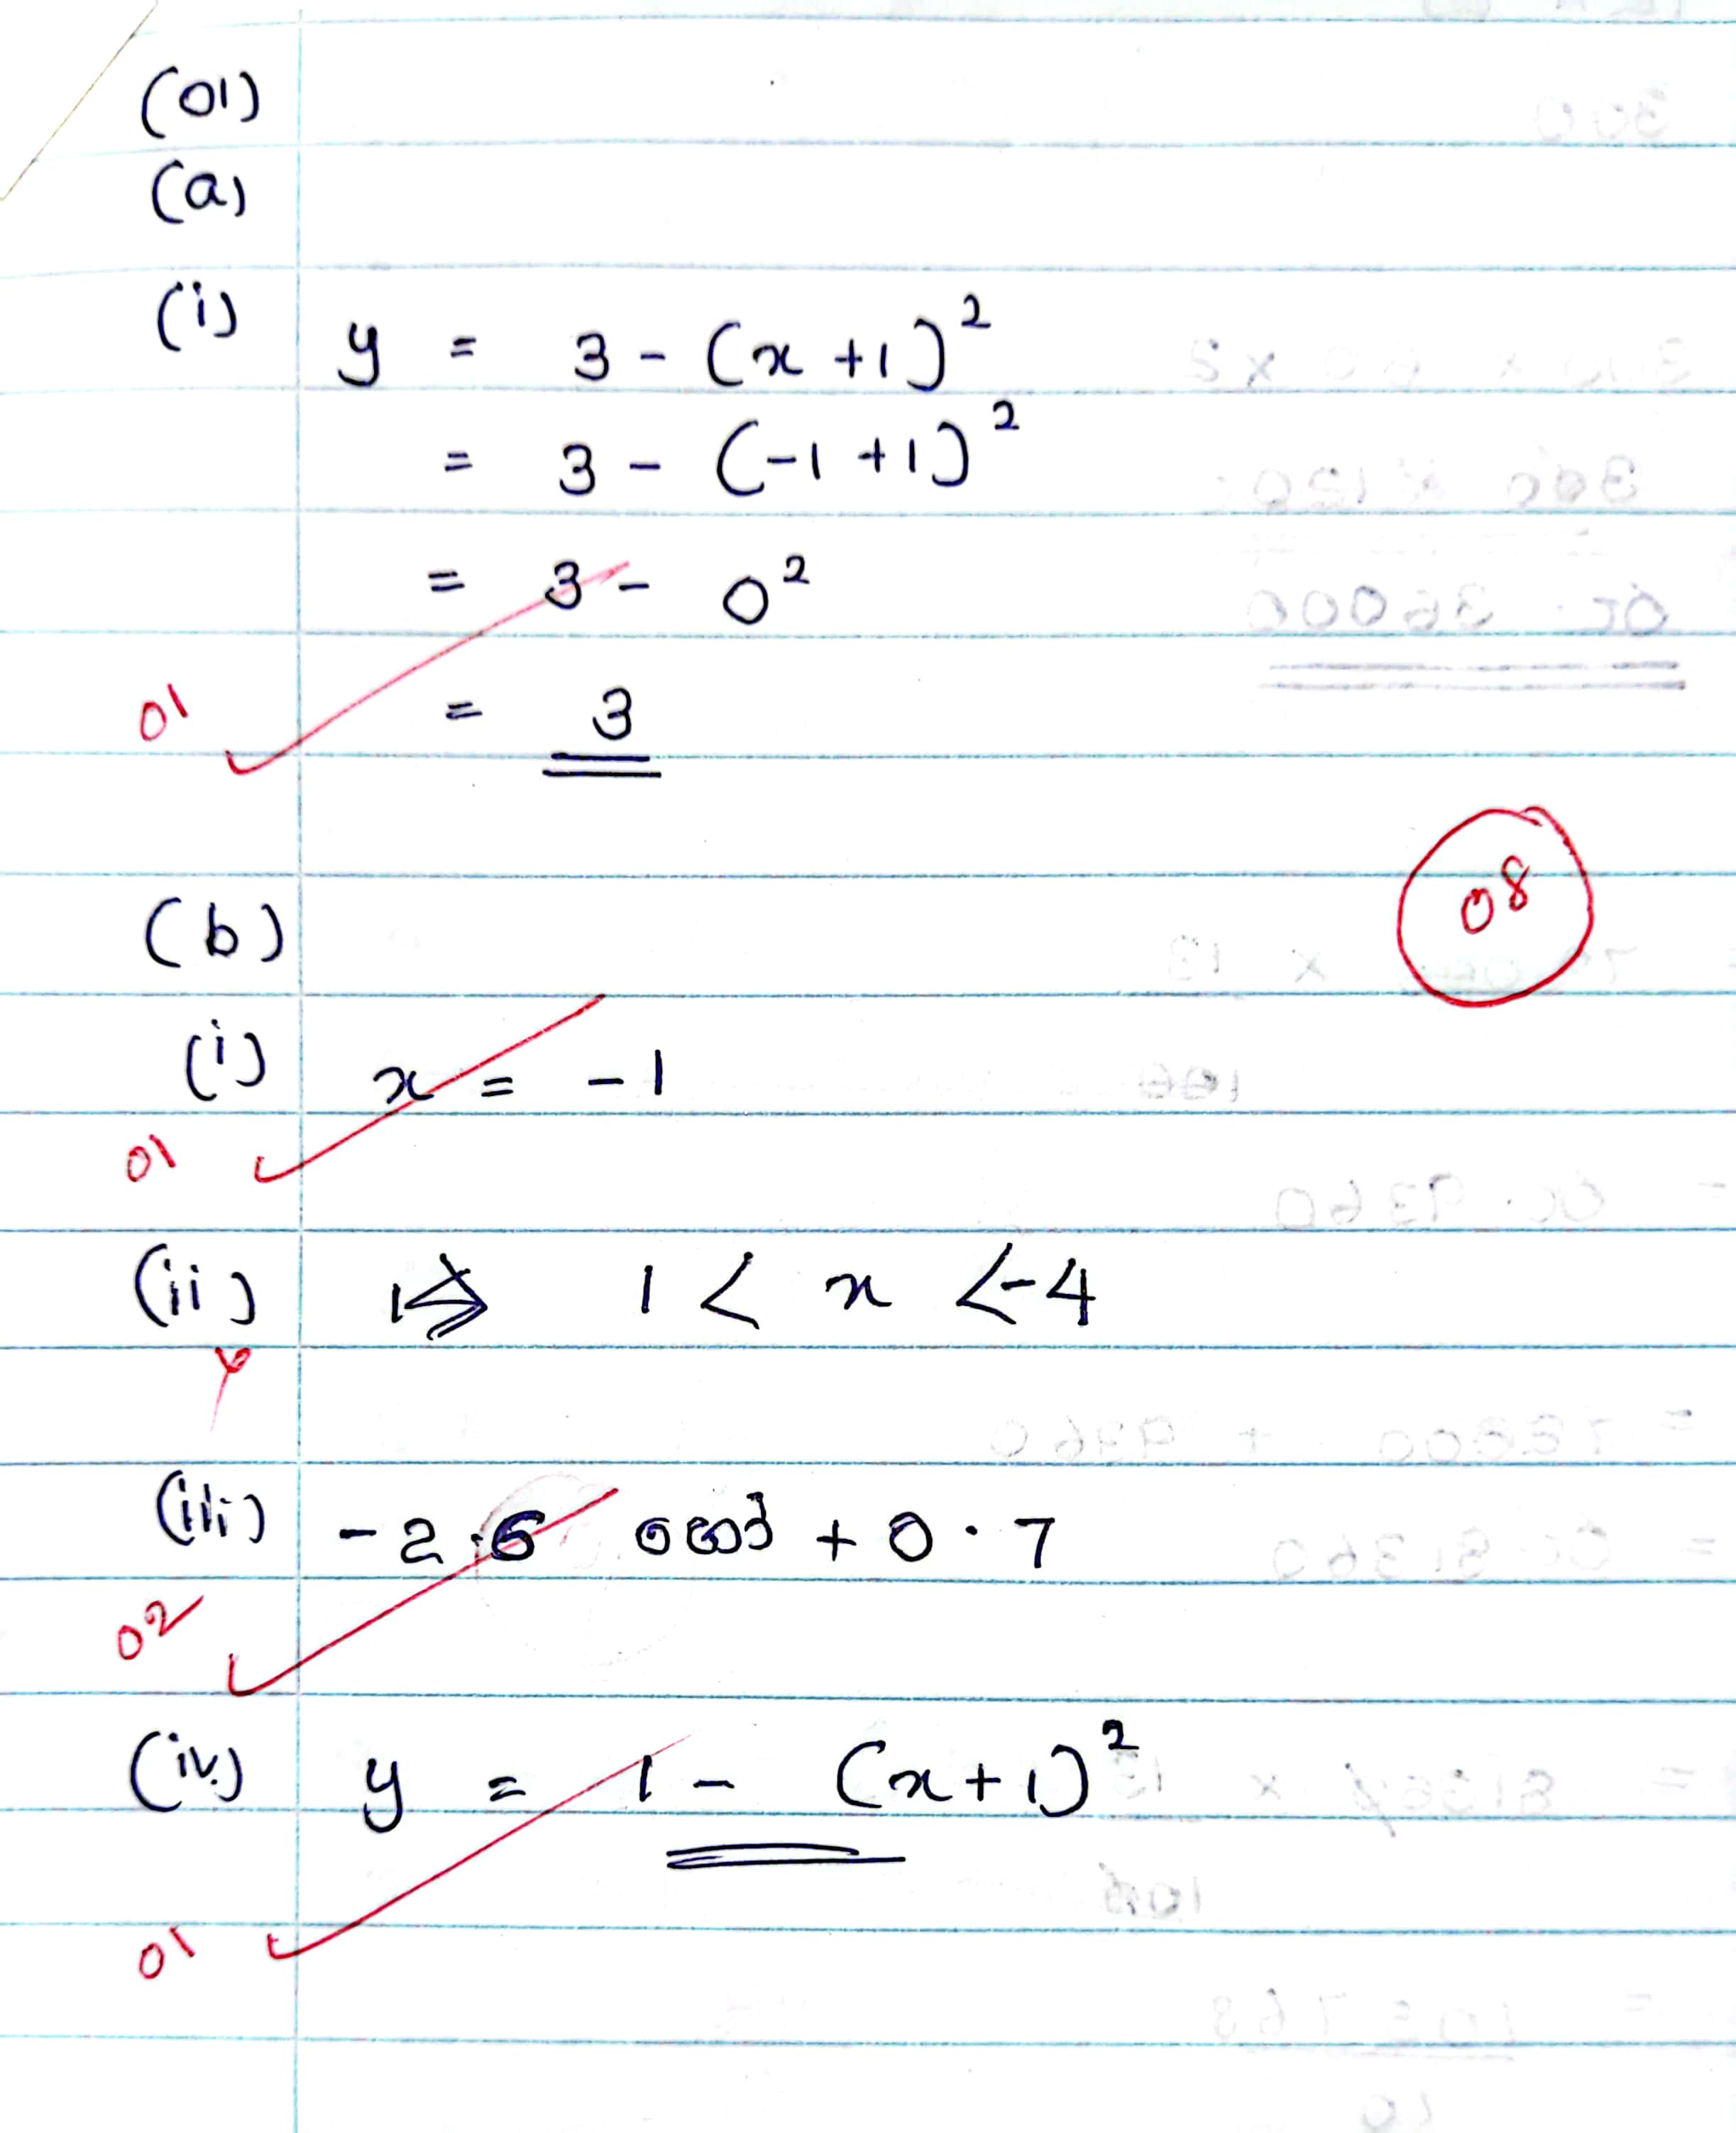 (01)
(a)
(i) y = 3 - (x + 1)²
= 3 - (-1 + 1)²
= 3 - 0²
01 = 3
08
(b)
(i) x = -1
01
(ii) 1 < x < -4
(iii) -2.6 සහ + 0.7
02
(iv) y = 1 - (x+1)²
01